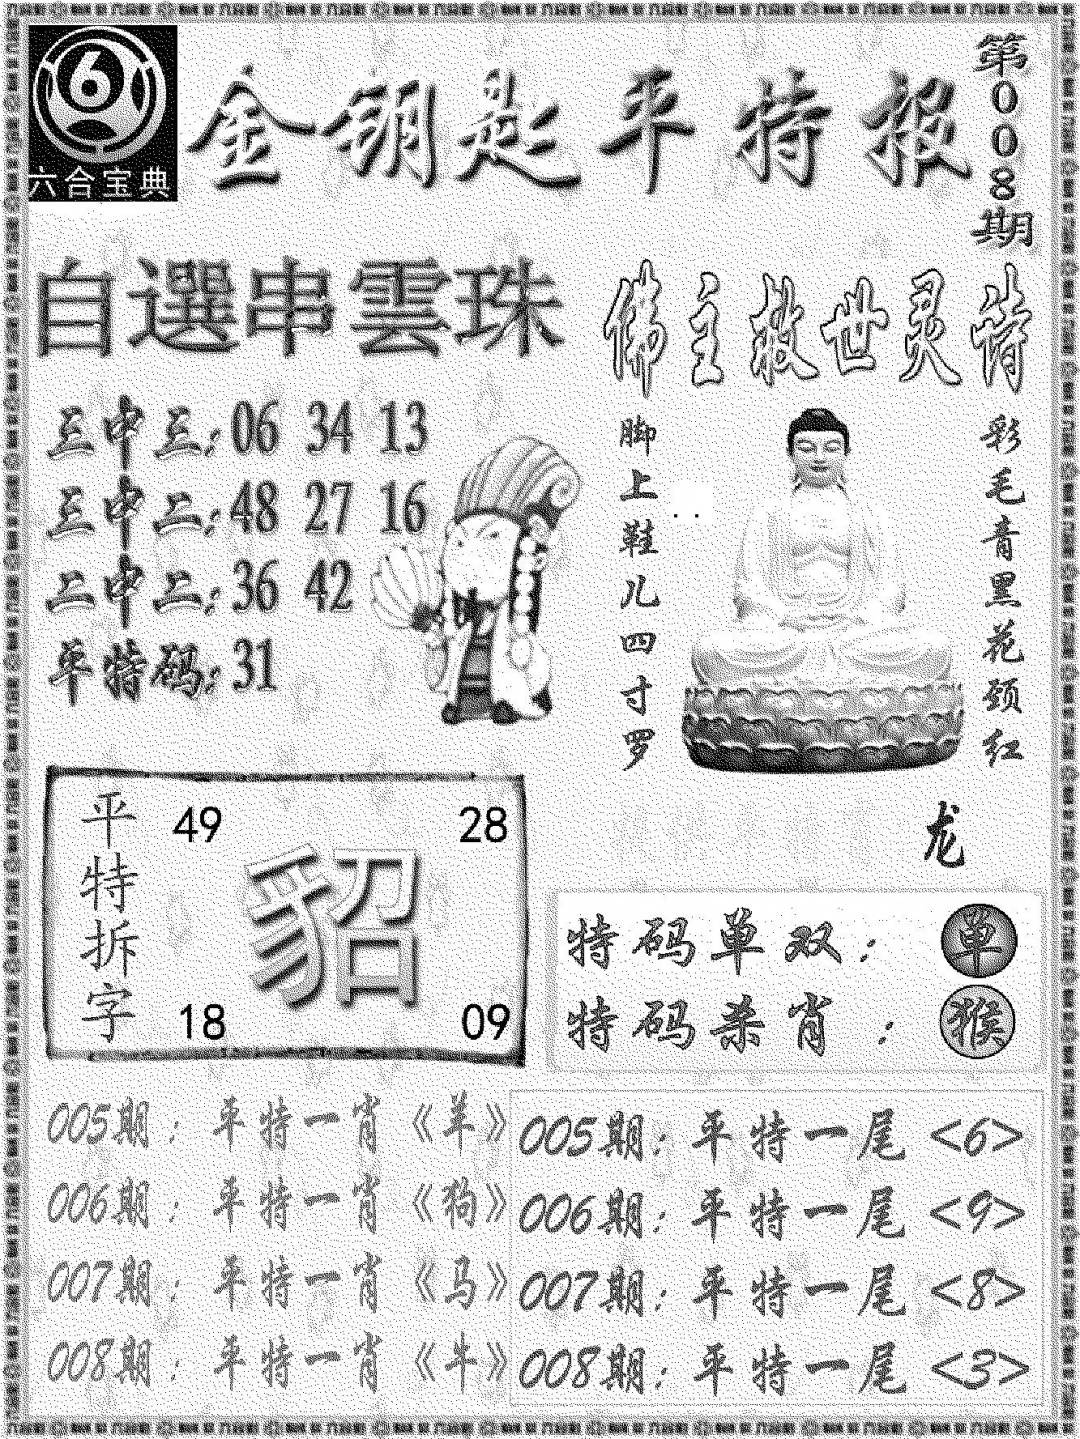 6
六合宝典
金钥匙平特报
第008期
自選串雲珠
三中三:06 34 13
三中二:48 27 16
二中二:36 42
单特码:31
佛主救世灵诗
彩毛青黑花颈红
脚上鞋儿四寸罗
龙
平特拆字
49 28
貂
18 09
特码单双:单
特码杀肖:猴
005期:平特一肖《羊》
006期:平特一肖《狗》
007期:平特一肖《马》
008期:平特一肖《牛》
005期:平特一尾<6>
006期:平特一尾<9>
007期:平特一尾<8>
008期:平特一尾<3>